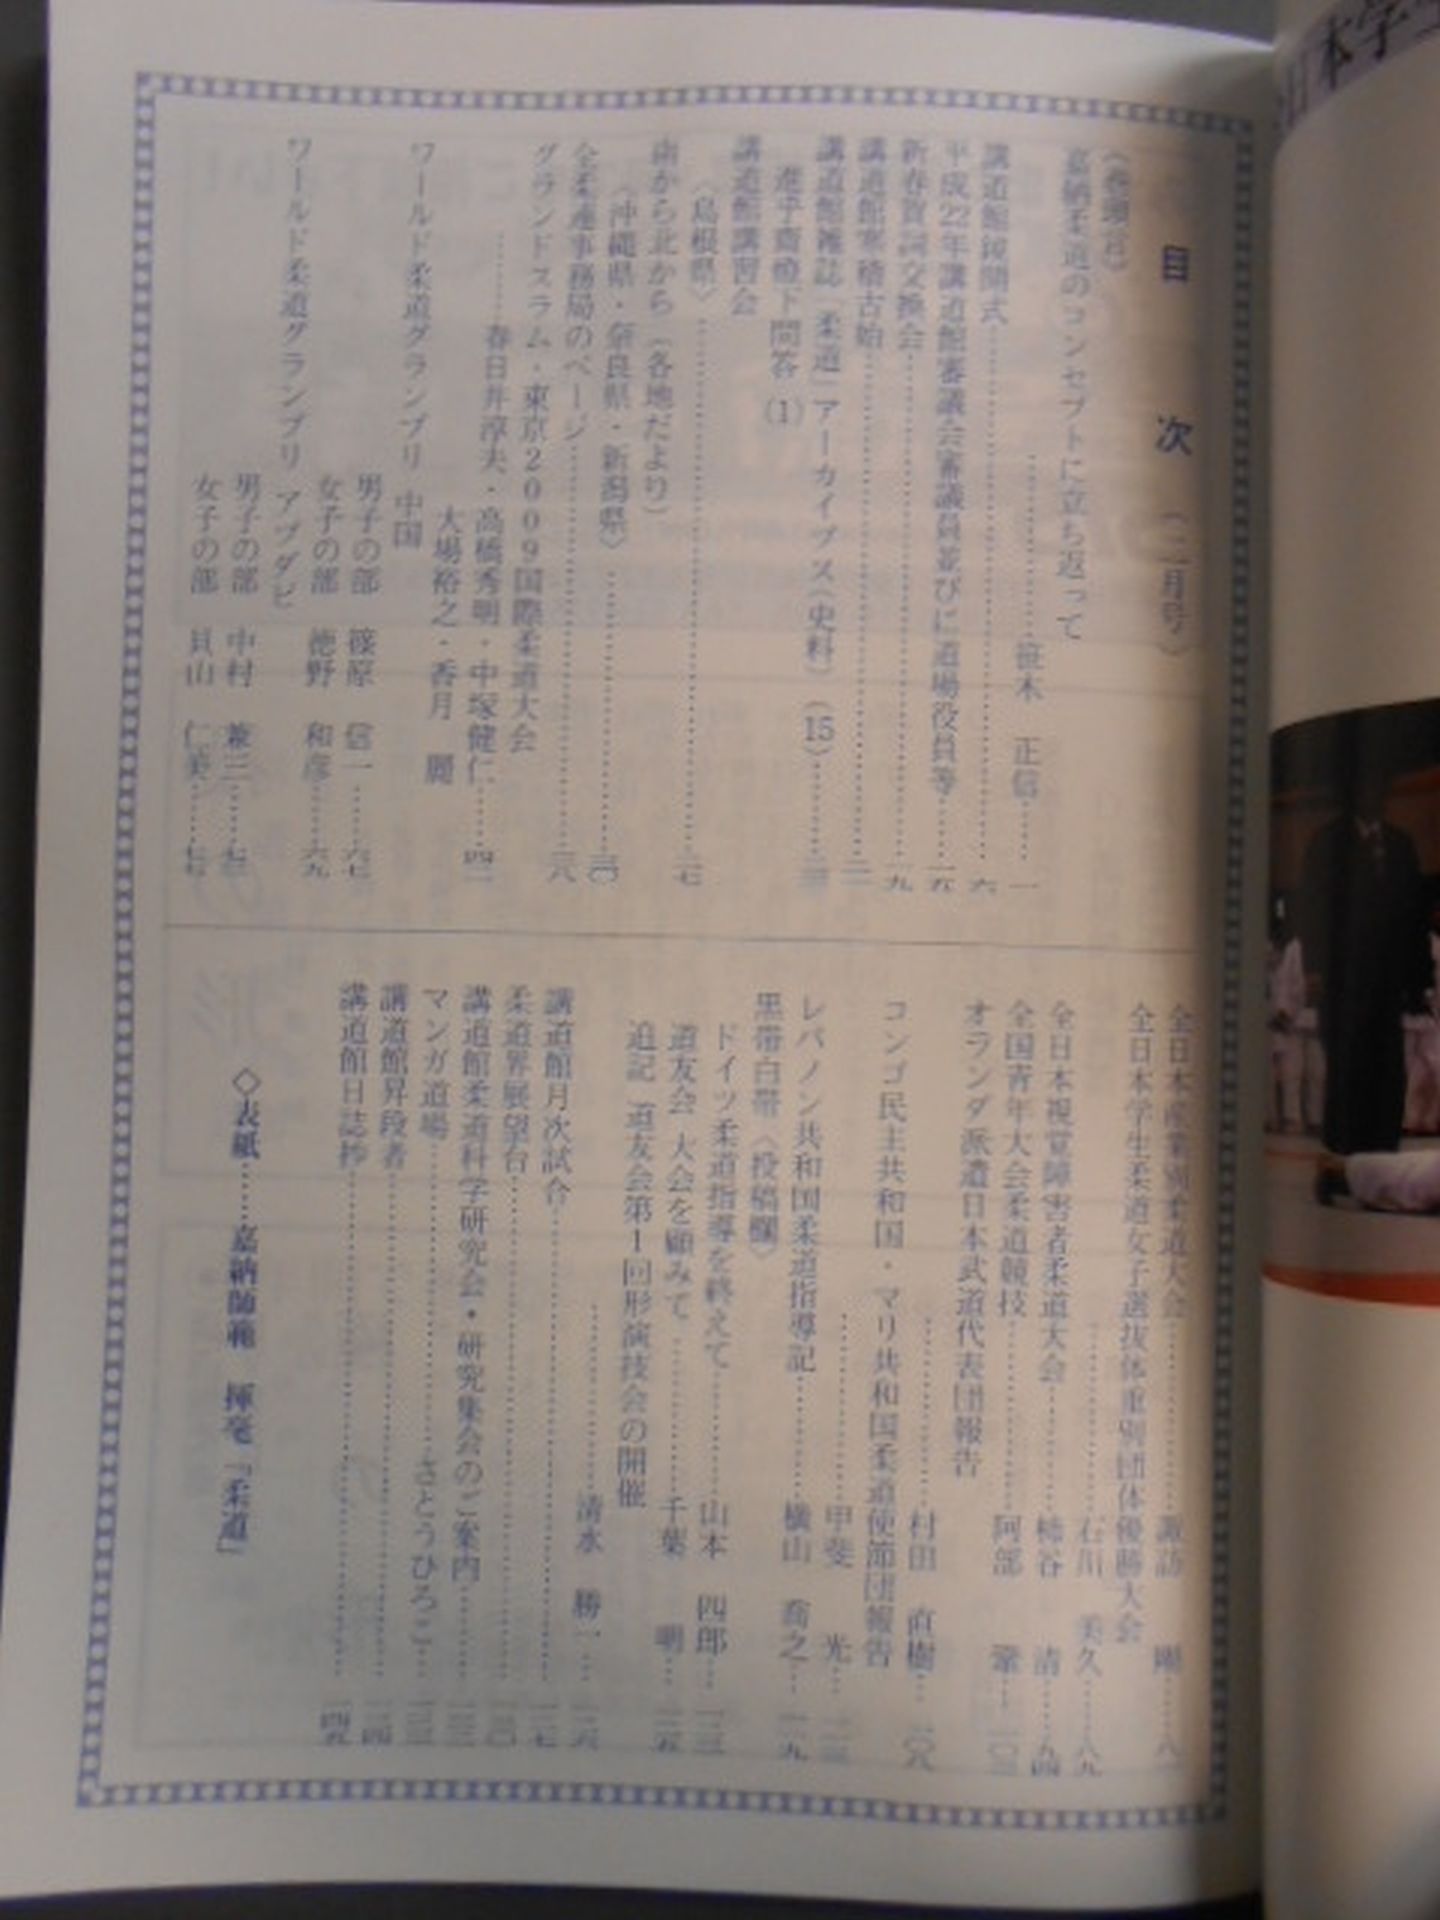 目次（二月号）
〈巻頭言〉
嘉納柔道のコンセプトに立ち返って
笹木 正信 一
講道館鏡開式 六
平成22年講道館審議会審議員並びに道場役員等 一五
新春賀詞交換会 一九
講道館寒稽古始
講道館雑誌「柔道」アーカイブス（史料）（15）
問答（1）
講道館講習会
〈島根県〉 二七
南から北から（各地だより）
〈沖縄県・奈良県・新潟県〉 三〇
全柔連事務局のページ 三八
グランドスラム・東京2009国際柔道大会
春日井淳夫・高橋秀明・中塚健仁
大場裕之・香月 麗
ワールド柔道グランプリ 中国
男子の部 篠原 信一 六七
女子の部 徳野 和彦 六九
ワールド柔道グランプリ アブダビ
男子の部 中村 兼三
女子の部 貝山 仁美
全日本産業別柔道大会 諏訪 剛 八一
全日本学生柔道女子選抜体重別団体優勝大会
石川 美久 八九
全日本視覚障害者柔道大会 柿谷 清 九四
全国青年大会柔道競技 阿部
オランダ派遣日本武道代表団報告
村田 直樹 一〇八
コンゴ民主共和国・マリ共和国柔道使節団報告
甲斐 光
レバノン共和国柔道指導記 横山 喬之 一一九
黒帯白帯〈投稿欄〉
ドイツ柔道指導を終えて 山本 四郎
道友会 大会を顧みて 千葉 明 一二五
追記 道友会第1回形演技会の開催
清水 勝一 一二六
講道館月次試合 一二七
柔道界展望台 一三〇
講道館柔道科学研究会・研究集会のご案内
マンガ道場 さとうひろこ
講道館昇段者
講道館日誌抄
◇表紙 嘉納師範 揮毫「柔道」
本学生